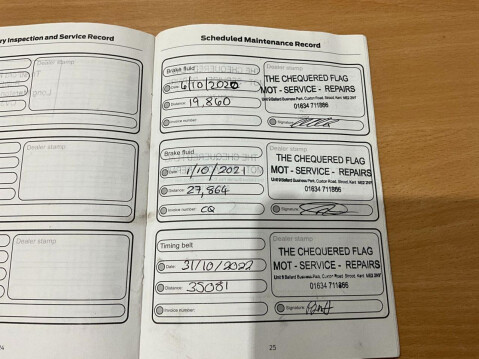 ry Inspection and Service Record
Dealer stamp
Dealer stamp
Dealer stamp
24
Scheduled Maintenance Record
Brake fluid
Date: 6/10/2020
Distance: 19,860
Invoice number:
Dealer stamp
THE CHEQUERED FLAG
MOT - SERVICE - REPAIRS
Unit 9 Ballard Business Park, Cuxton Road, Strood, Kent
01634 711866
Signature:
Brake fluid
Date: 1/10/2021
Distance: 27,864
Invoice number: CQ
Dealer stamp
THE CHEQUERED FLAG
MOT - SERVICE - REPAIRS
Unit 9 Ballard Business Park, Cuxton Road, Strood, Kent
01634 711866
Signature:
Timing belt
Date: 31/10/2022
Distance: 35081
Invoice number:
Dealer stamp
THE CHEQUERED FLAG
MOT - SERVICE - REPAIRS
Unit 9 Ballard Business Park, Cuxton Road, Strood, Kent
01634 711866
Signature:
25